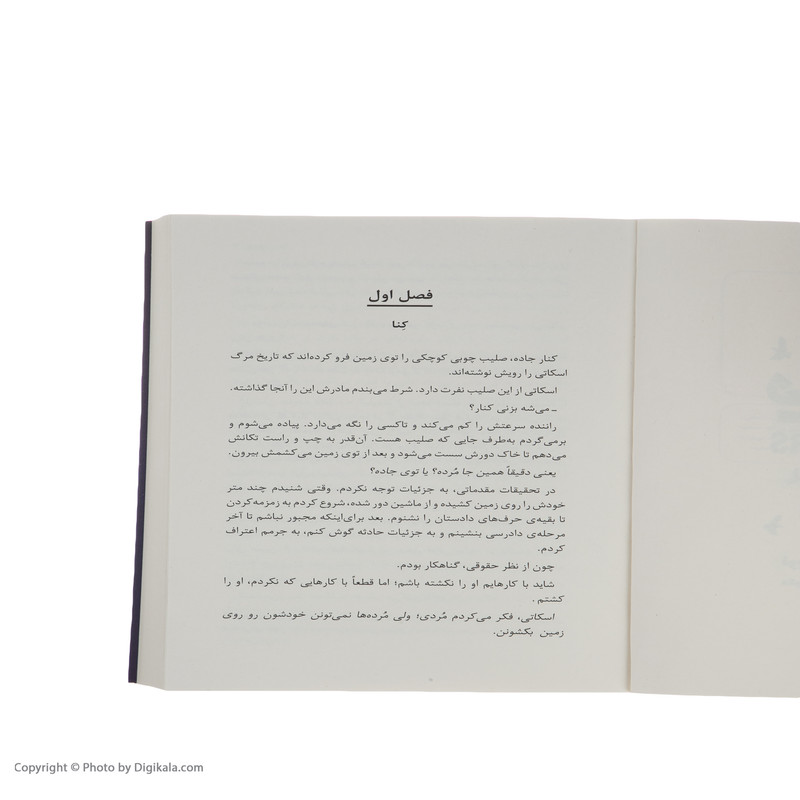 فصل اول
کِنا
کنار جاده، صلیب چوبی کوچکی را توی زمین فرو کرده‌اند که تاریخ مرگ
اسکاتی را رویش نوشته‌اند.
اسکاتی از این صلیب نفرت دارد. شرط می‌بندم مادرش این را آنجا گذاشته.
ـ می‌شه بزنی کنار؟
راننده سرعتش را کم می‌کند و تاکسی را نگه می‌دارد. پیاده می‌شوم و
برمی‌گردم به‌طرف جایی که صلیب هست. آن‌قدر به چپ و راست تکانش
می‌دهم تا خاک دورش سست می‌شود و بعد از توی زمین می‌کشمش بیرون.
یعنی دقیقاً همین جا مُرده؟ یا توی جاده؟
در تحقیقات مقدماتی، به جزئیات توجه نکردم. وقتی شنیدم چند متر
خودش را روی زمین کشیده و از ماشین دور شده، شروع کردم به زمزمه‌کردن
تا بقیه‌ی حرف‌های دادستان را نشنوم. بعد برای‌اینکه مجبور نباشم تا آخر
مرحله‌ی دادرسی بنشینم و به جزئیات حادثه گوش کنم، به جرمم اعتراف
کردم.
چون از نظر حقوقی، گناهکار بودم.
شاید با کارهایم او را نکشته باشم؛ اما قطعاً با کارهایی که نکردم، او را
کشتم .
اسکاتی، فکر می‌کردم مُردی؛ ولی مُرده‌ها نمی‌تونن خودشون رو روی
زمین بکشونن.
Copyright © Photo by Digikala.com